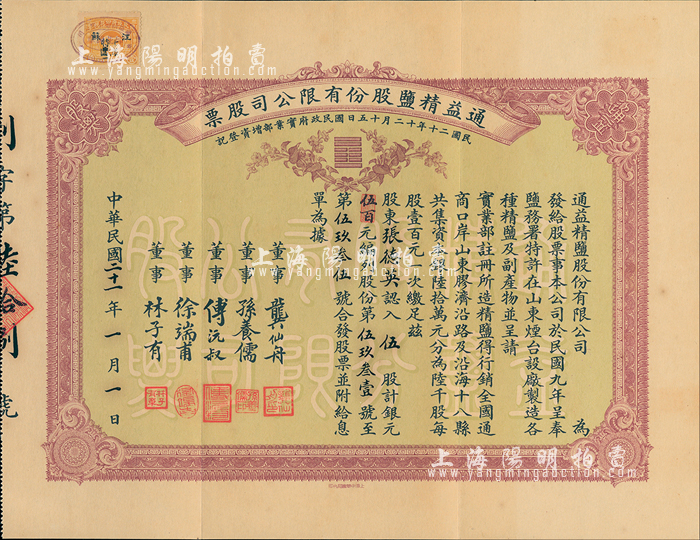 江蘇
上海陽明拍賣
www.yangmingauction.com
通益精鹽股份有限公司股票
民國二十年十二月十五日國民政府實業部增資登記
通益精鹽股份有限公司 為
發給股票事本公司於民國九年呈奉
鹽務署特許在山東煙台設廠製造各
種精鹽及副產物並呈請
實業部註冊所造精鹽得行銷全國通
商口岸山東膠濟沿路及沿海十八縣
共集資本銀陸拾萬元分為陸千股每
股壹百元一次繳足茲
股東張德英認入 伍 股計銀元
伍百元編列股份第伍玖叁壹號至
第伍玖叁伍號合發股票並附給息
單為據
董事 龔仙舟
董事 孫養儒
董事 傅沅叔
董事 徐端甫
董事 林子有
中華民國二十一年一月一日
字第陸拾捌號
上海陽明拍賣
www.yangmingauction.com